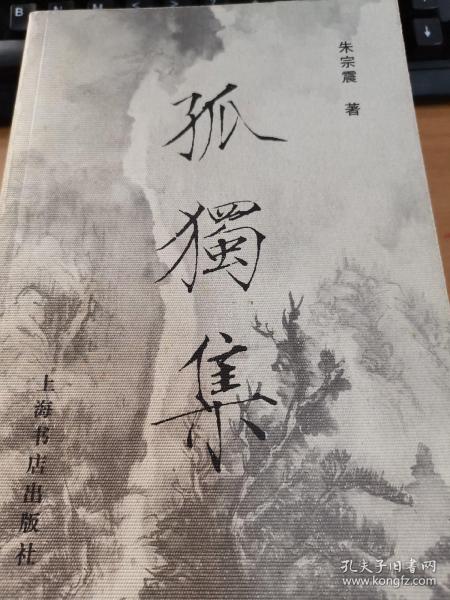 朱宗震 著
孤獨集
上海书店出版社
孔夫子旧书网
www.kongfz.com